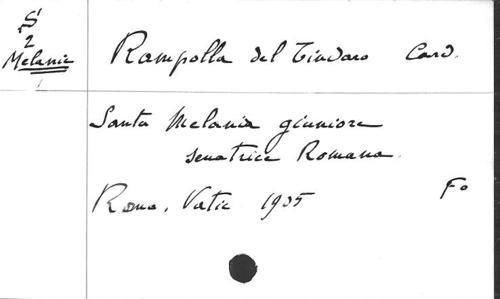 S
2
Melanie
Rampolla del Tindaro Card.
Santa Melania giuniore
senatrice Romana.
Roma, Vatic 1905
Fo